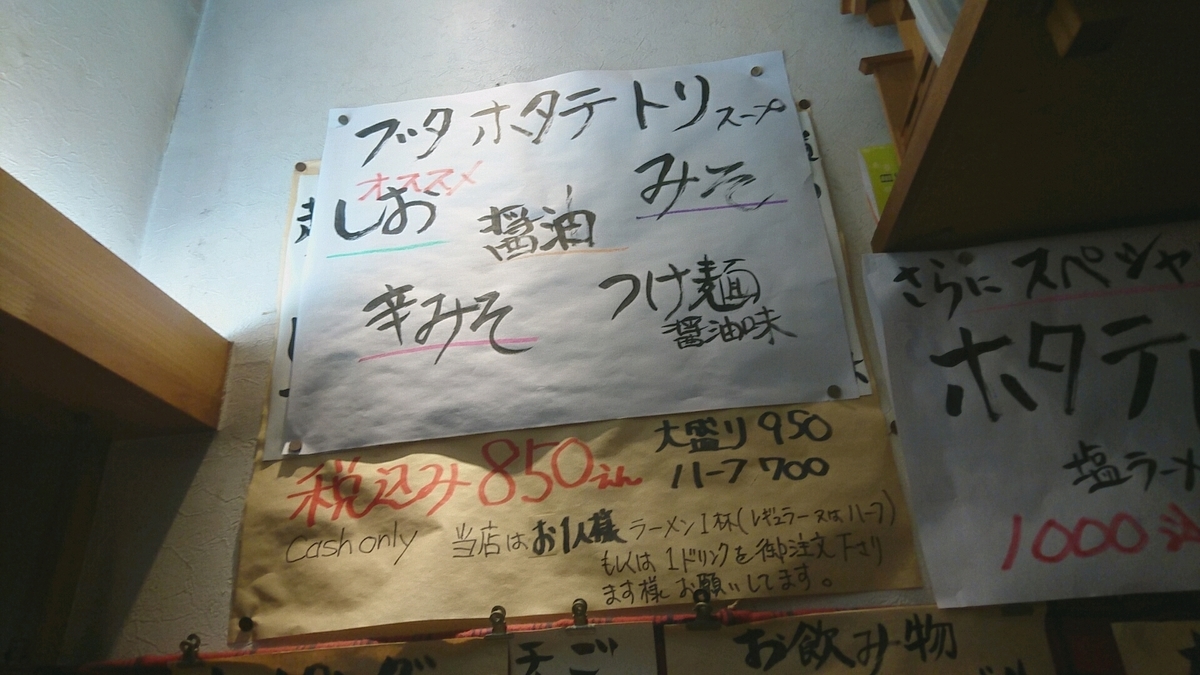 ブタ ホタテ トリ スープ
オススメ
しお 醤油 みそ
辛みそ つけ麺
醤油味
税込み 850えん
大盛り 950
ハーフ 700
Cash only
当店は お1人様 ラーメン1杯(レギュラー又はハーフ)
もしくは 1ドリンクを 御注文下さり
ます様 お願いしてます。
さらに スペシャ
ホタテ
塩ラーメ
1000込
お飲み物